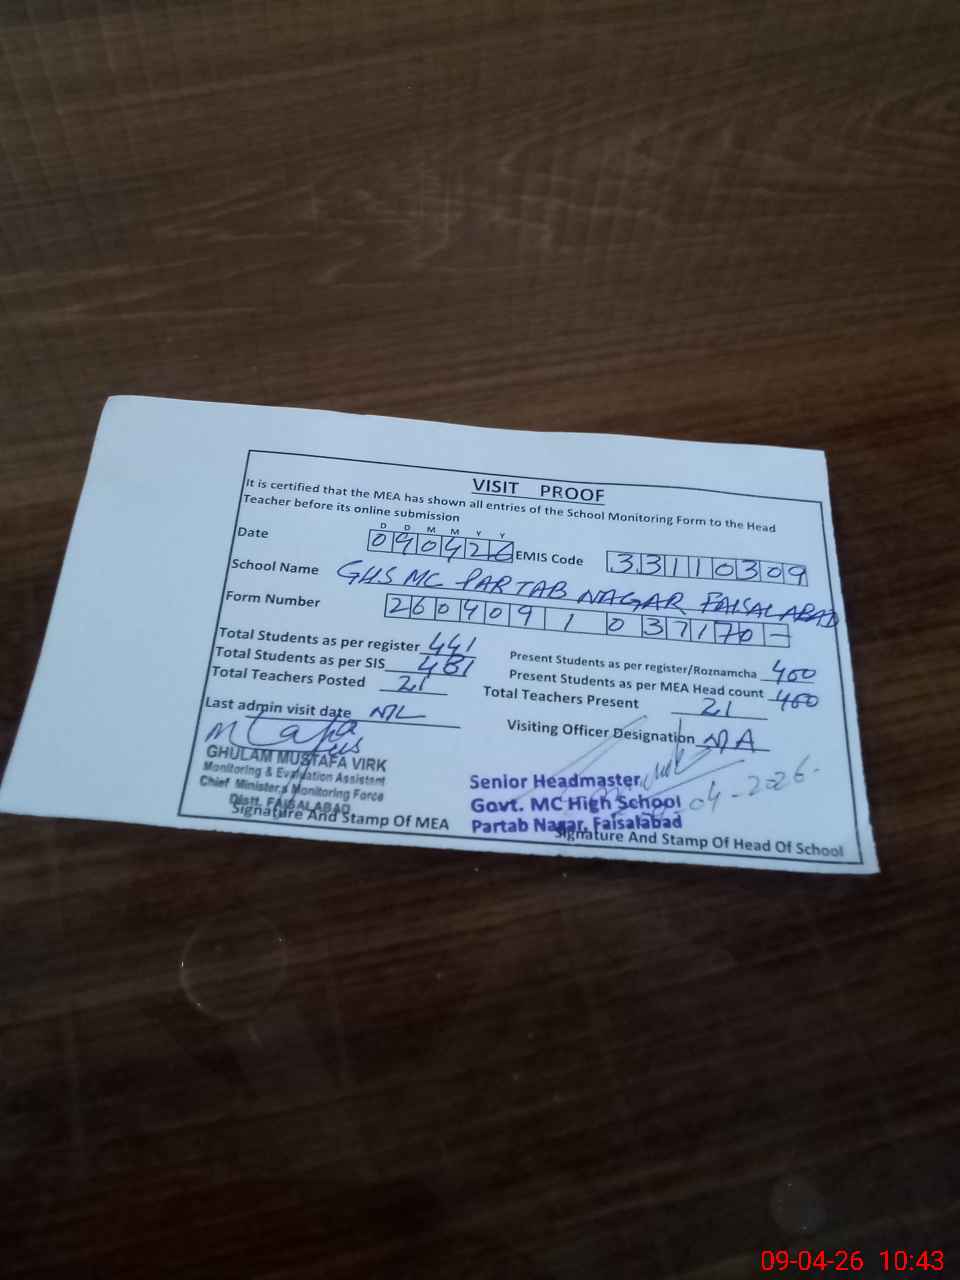 VISIT PROOF
It is certified that the MEA has shown all entries of the School Monitoring Form to the Head
Teacher before its online submission
D D M M Y Y
Date 090426 EMIS Code 33110309
School Name GHS MC PARTAB NAGAR FAISALABAD
Form Number 260409 1 037170 -
Total Students as per register 441
Present Students as per register/Roznamcha 400
Total Students as per SIS 481
Present Students as per MEA Head count 400
Total Teachers Posted 21
Total Teachers Present 21
Last admin visit date NIL
Visiting Officer Designation NA
GHULAM MUSTAFA VIRK
Monitoring & Evaluation Assistant
Chief Minister,s Monitoring Force
Distt. FAISALABAD
Signature And Stamp Of MEA
Senior Headmaster
Govt. MC High School
Partab Nagar, Faisalabad
04-2026.
Signature And Stamp Of Head Of School
09-04-26 10:43